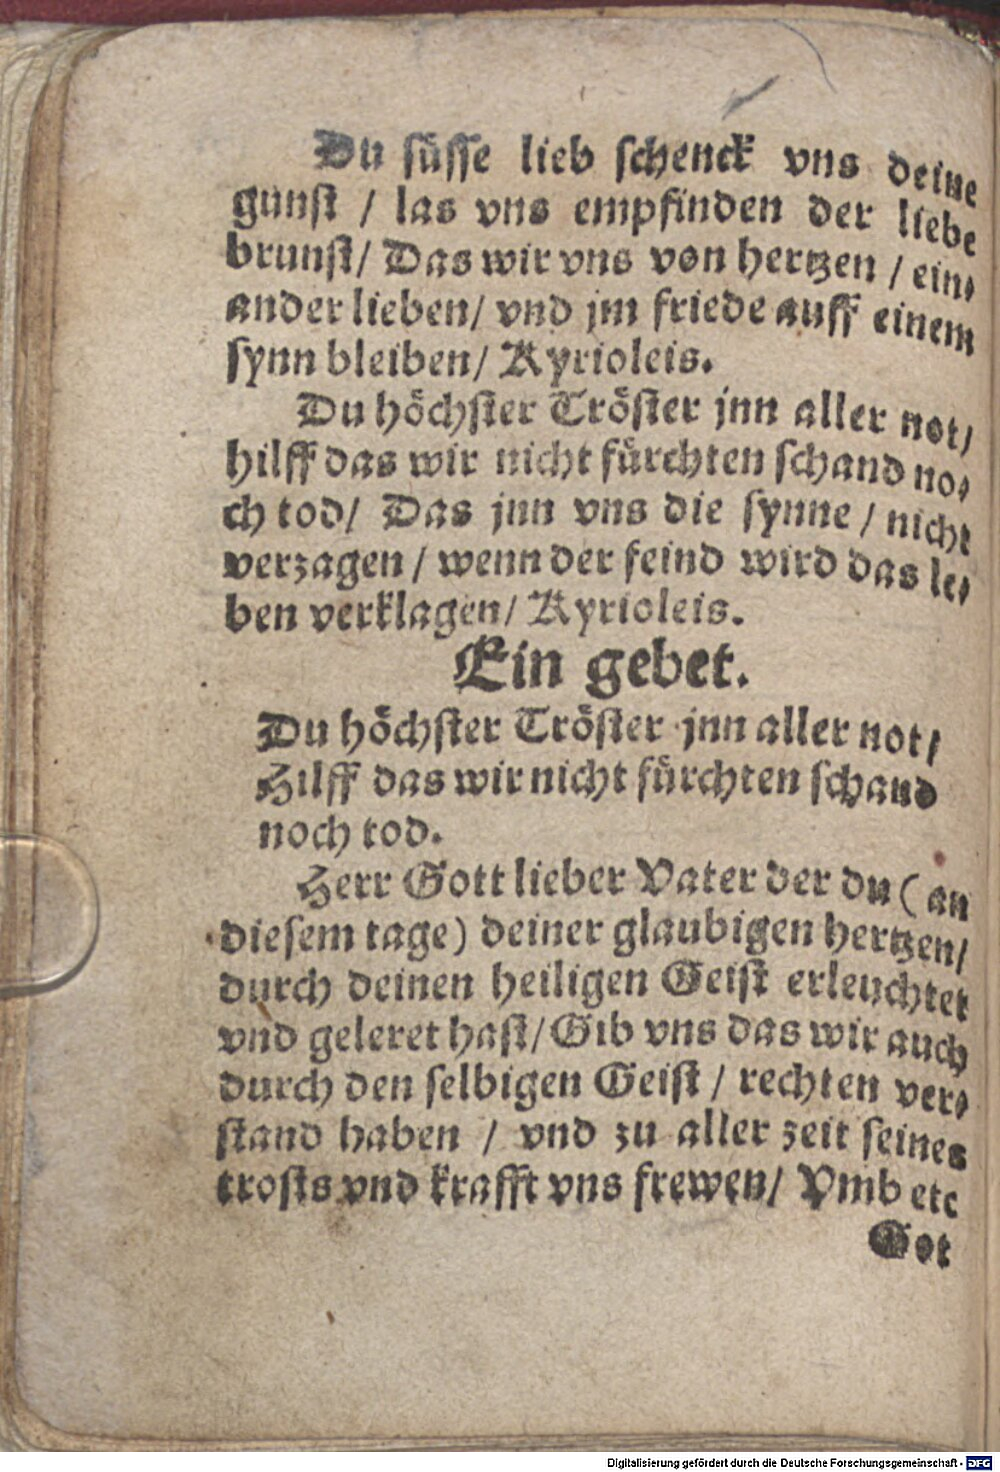 Du süsse lieb schenck vns deine
gunst / las vns empfinden der liebe
brunst / Das wir vns von hertzen / ein⸗
ander lieben / vnd jm friede auff einem
synn bleiben / Kyrioleis.
Du höchster Tröster jnn aller not /
hilff das wir nicht fürchten schand no⸗
ch tod / Das jnn vns die synne / nicht
verzagen / wenn der feind wird das le⸗
ben verklagen / Kyrioleis.
Ein gebet.
Du höchster Tröster jnn aller not /
Hilff das wir nicht fürchten schand
noch tod.
Herr Gott lieber Vater der du ( an
diesem tage ) deiner glaubigen hertzen /
durch deinen heiligen Geist erleuchtet
vnd geleret hast / Gib vns das wir auch
durch den selbigen Geist / rechten ver⸗
stand haben / vnd zu aller zeit seines
trosts vnd krafft vns frewen / Vmb etc
Got
Digitalisierung gefördert durch die Deutsche Forschungsgemeinschaft - DFG